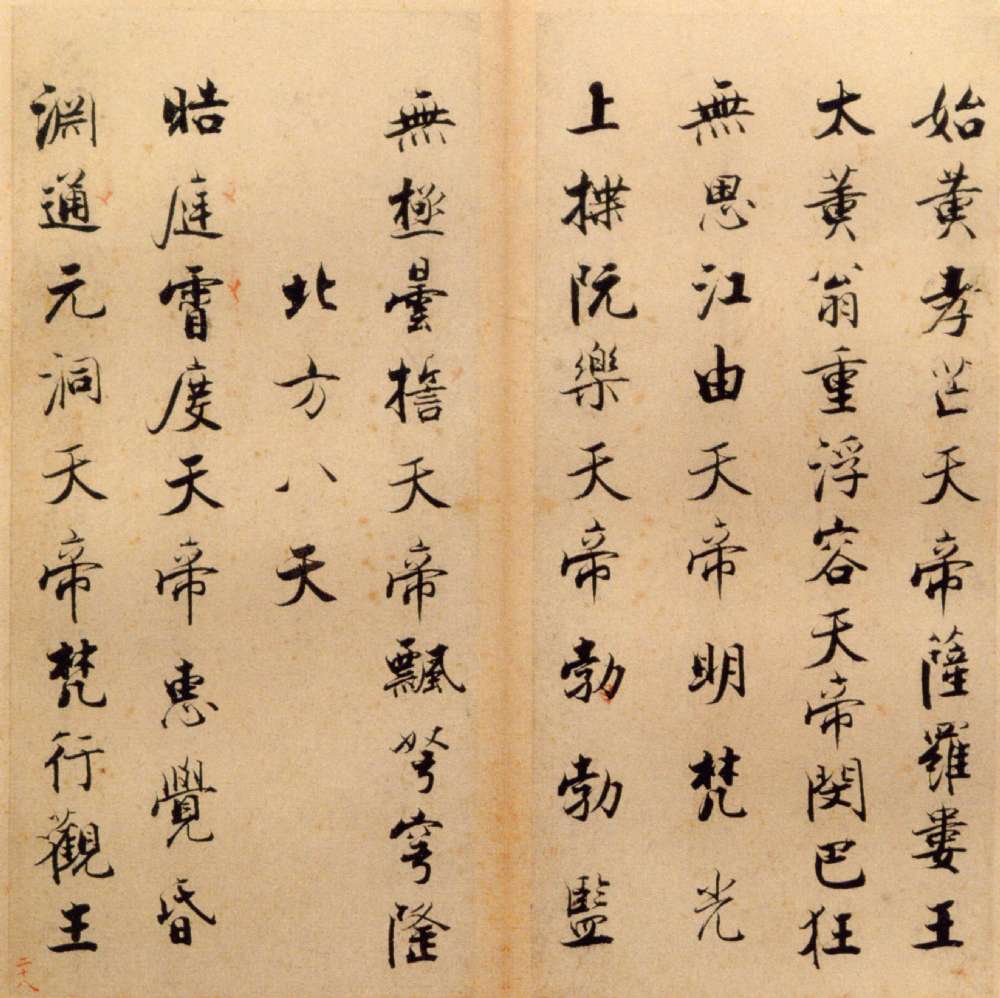 始黄孝芒天帝薩羅婁王
太黄翁重浮容天帝閔巴狂
無思江由天帝明梵光
上揲阮樂天帝勃勃監
無極曇誓天帝飄弩穹隆
北方八天
晧庭霄度天帝惠覺昏
淵通元洞天帝梵行觀生
二十八